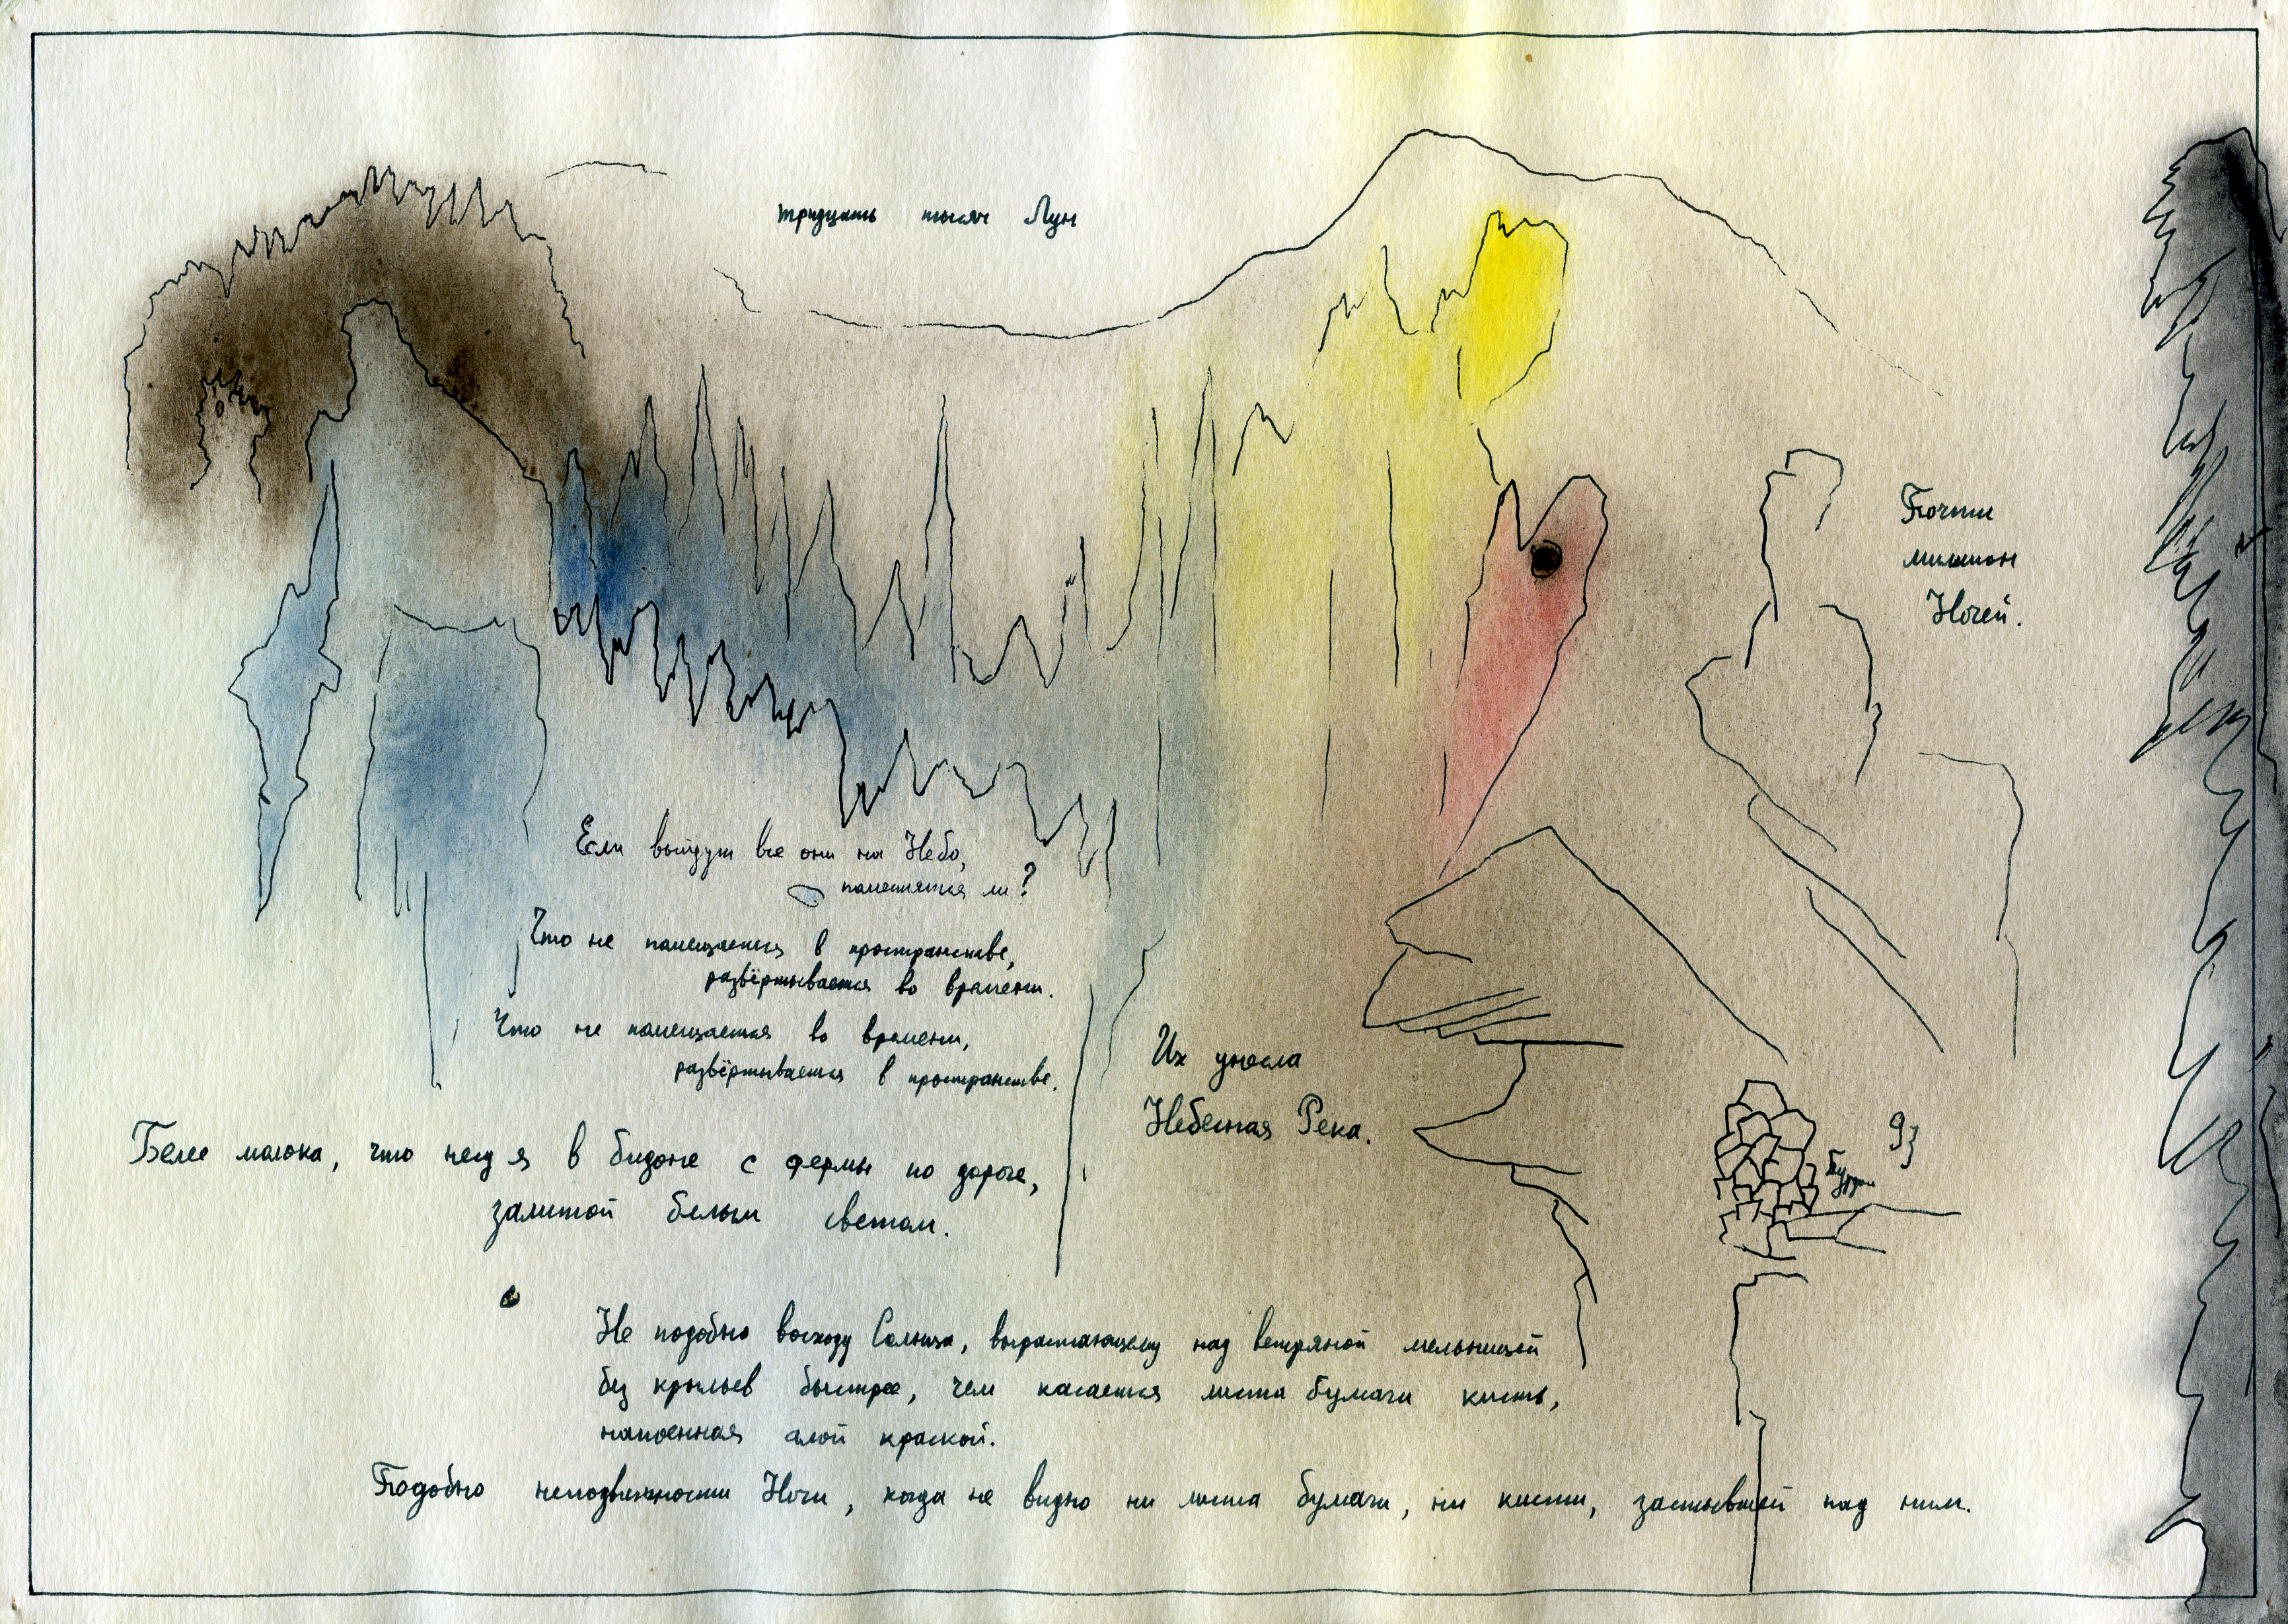 тридцать тысяч Лун
Почти
миллион
Ночей.
Если выйдут все они на Небо,
поместятся ли?
Что не помещается в пространстве,
развёртывается во времени.
Что не помещается во времени,
развёртывается в пространстве.
Их унесла
Небесная Река.
Белее молока, что несу я в бидоне с фермы по дороге,
залитой белым светом.
Не подобно восходу Солнца, вырастающему над ветряной мельницей
без крыльев быстрее, чем касается листа бумаги кисть,
напоенная алой краской.
Подобно неподвижности Ночи, когда не видно ни листа бумаги, ни кисти, застывшей над ним.